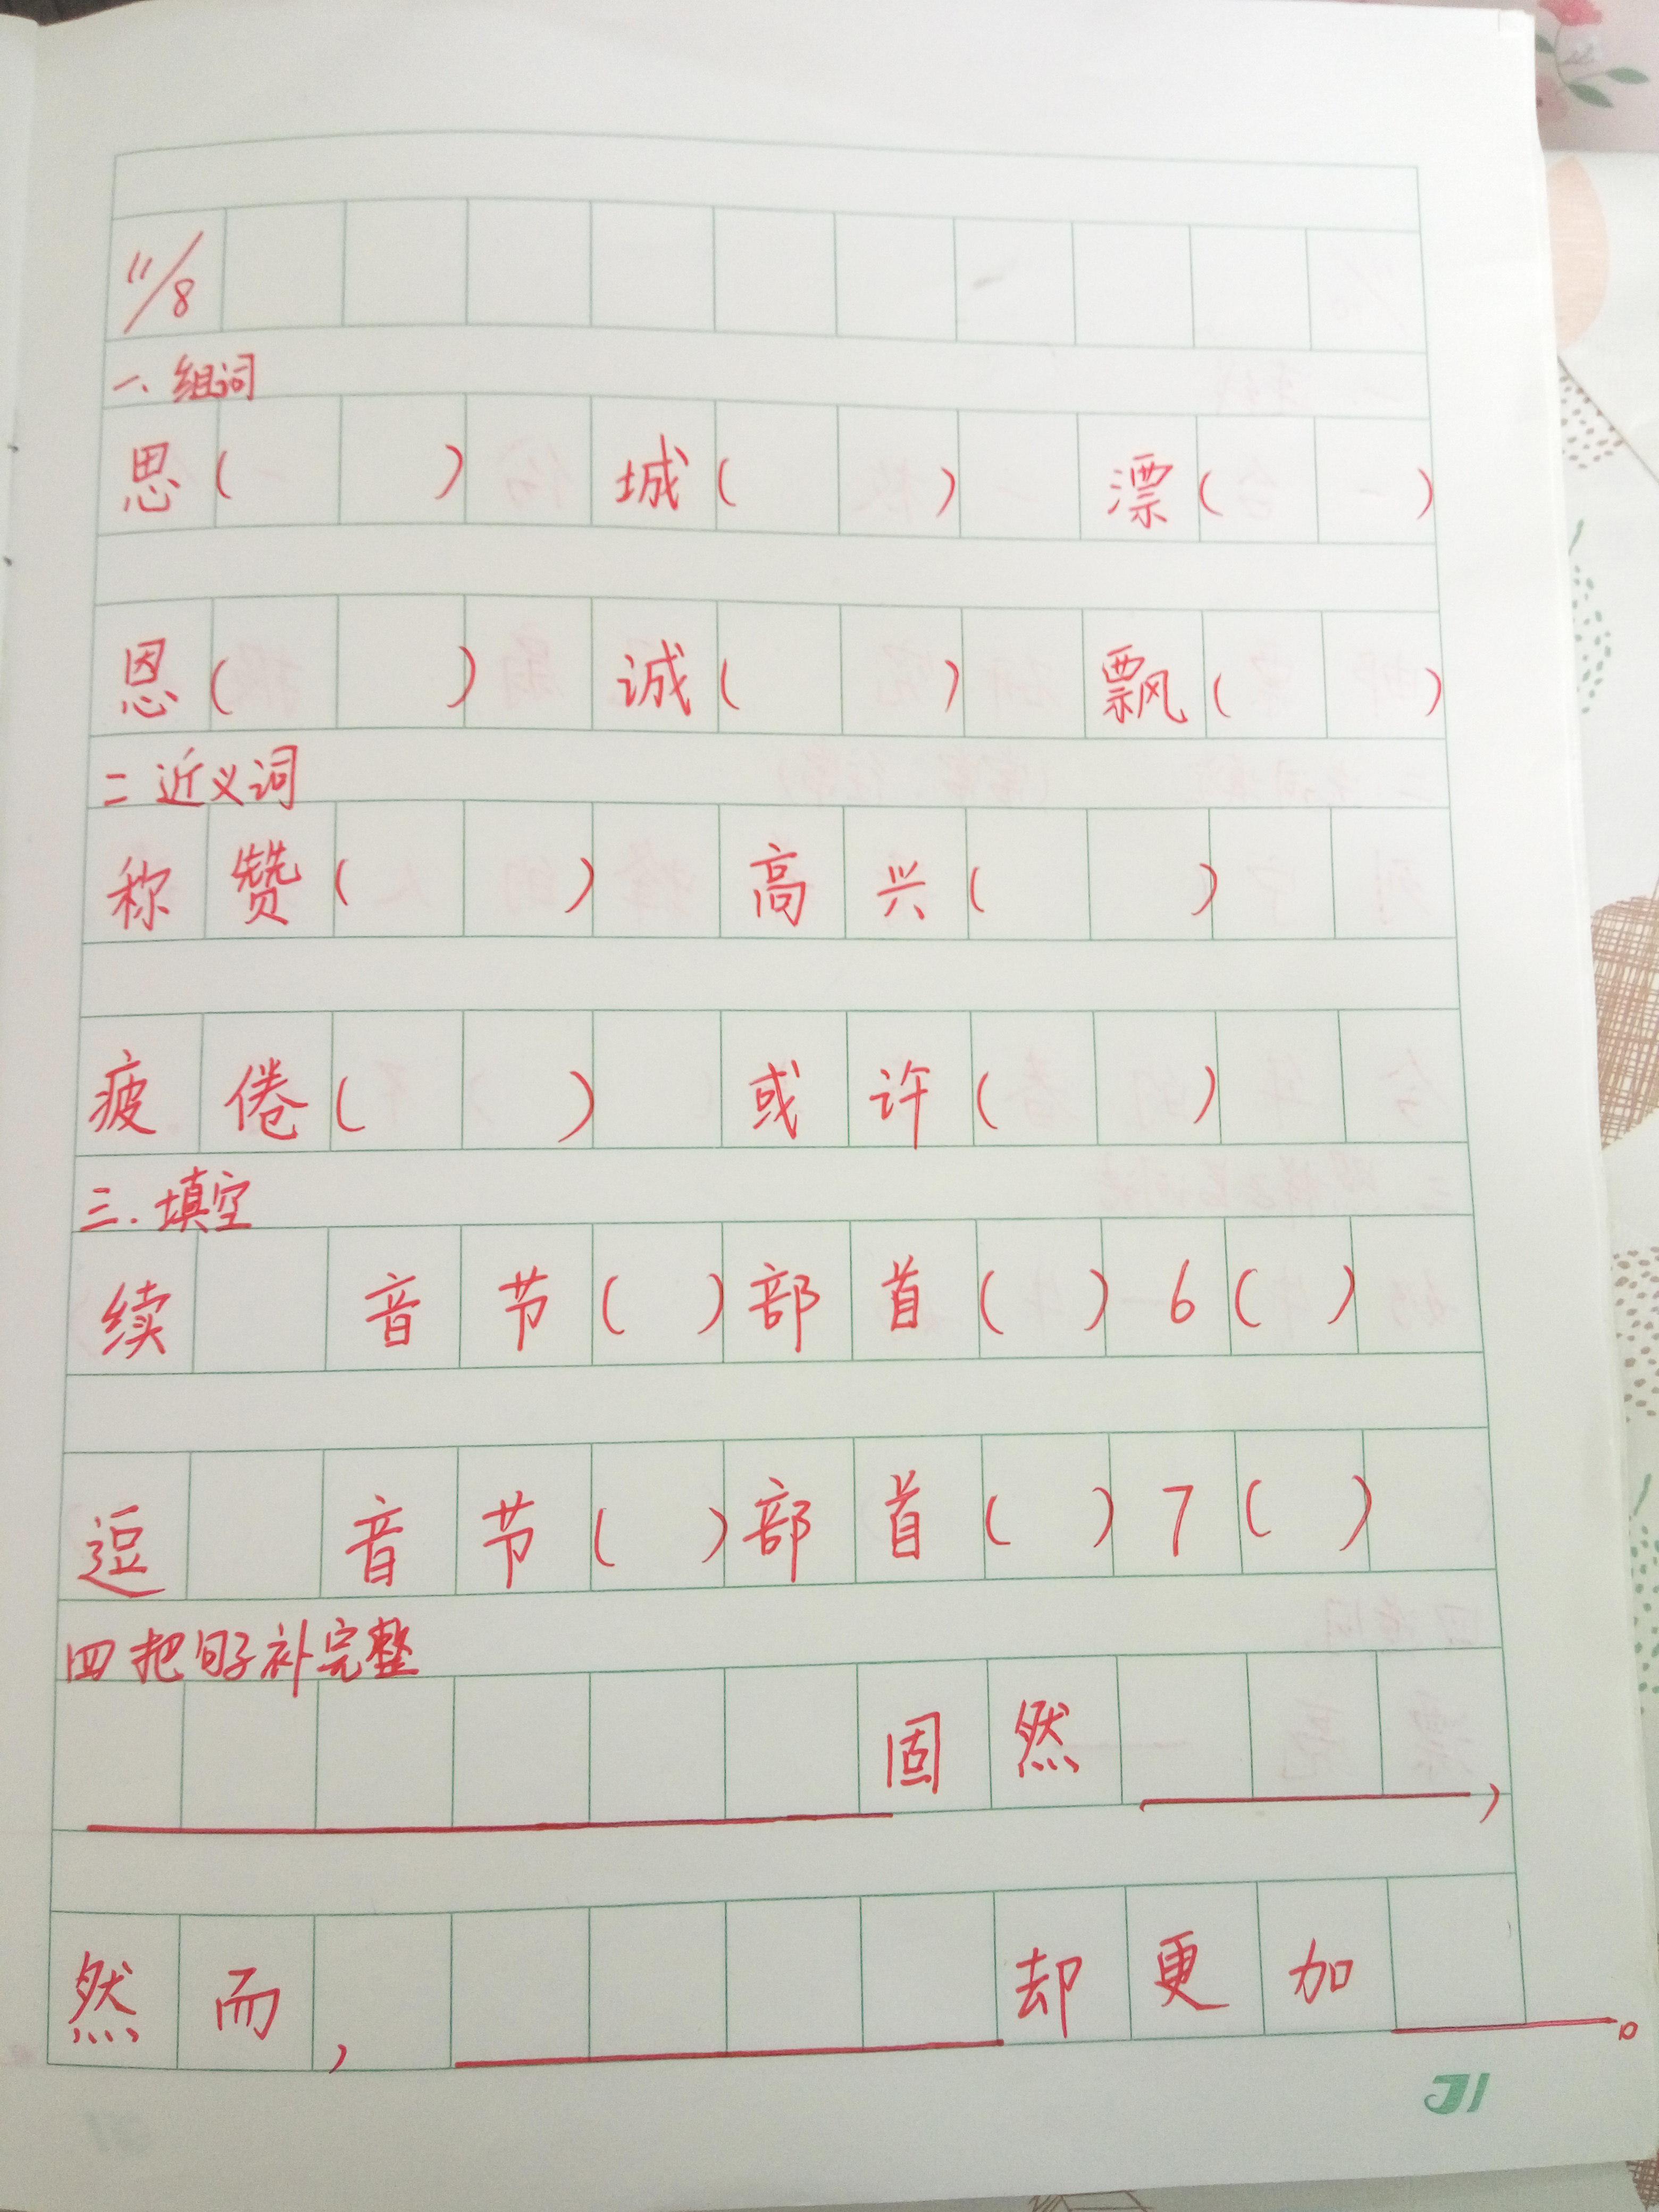 11/8
一、组词
思( ) 城( ) 漂( )
恩( ) 诚( ) 飘( )
二 近义词
称赞( ) 高兴( )
疲倦( ) 或许( )
三.填空
续 音节( )部首( )6( )
逗 音节( )部首( )7( )
四 把句子补完整
固然 ,
然而, 却更加 。